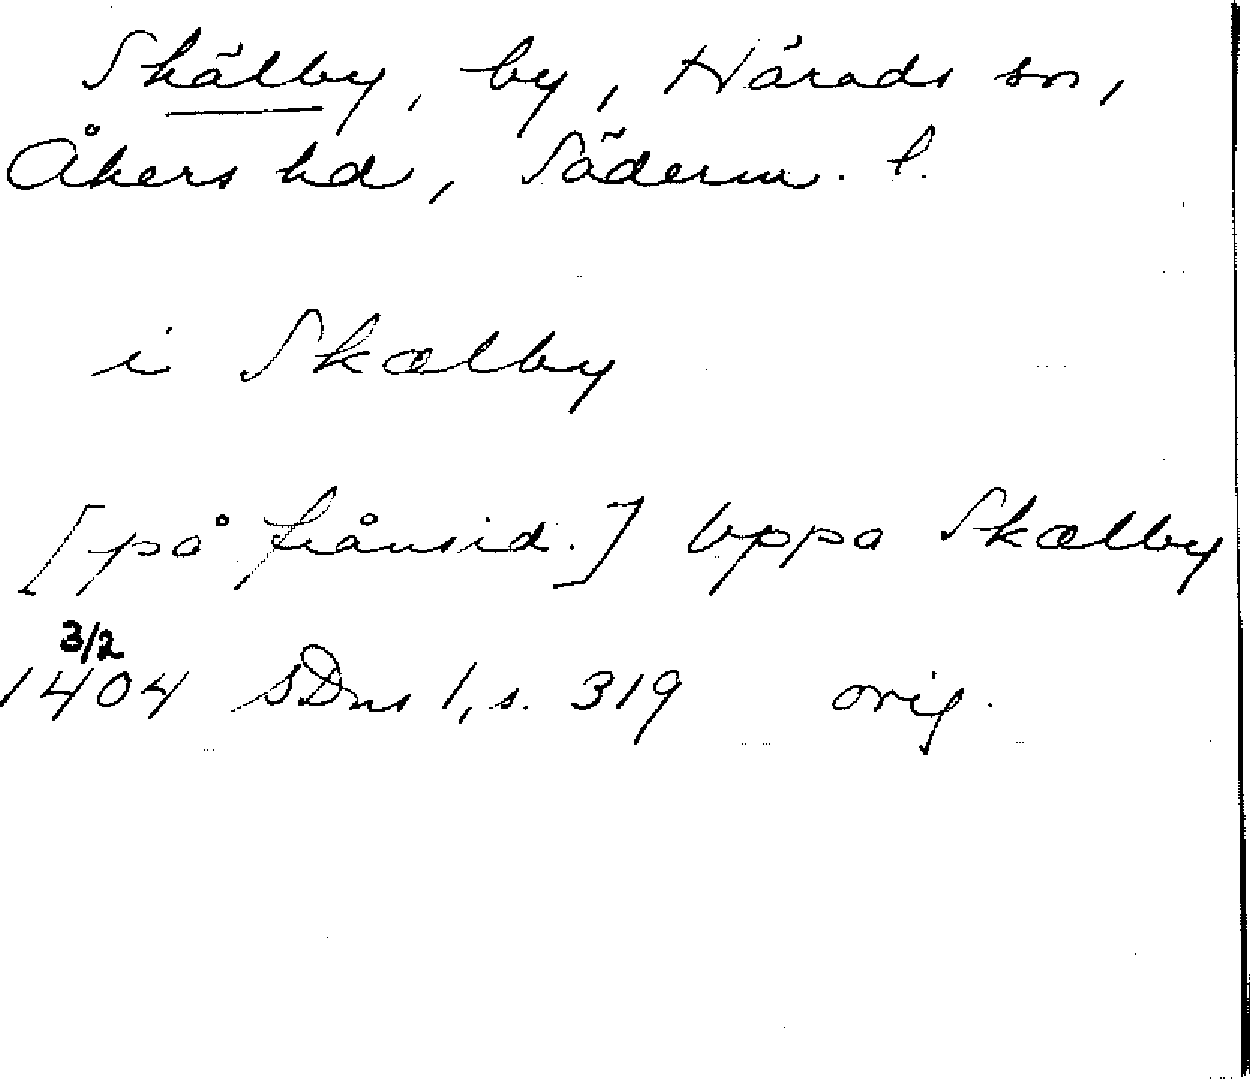 Skälby, by, Härads sn,
Åkers hd, Söderm. l.
i Skælby
[på frånsid.] Vppa Skælby
3/2
1404 SDns 1, s. 319 orig.